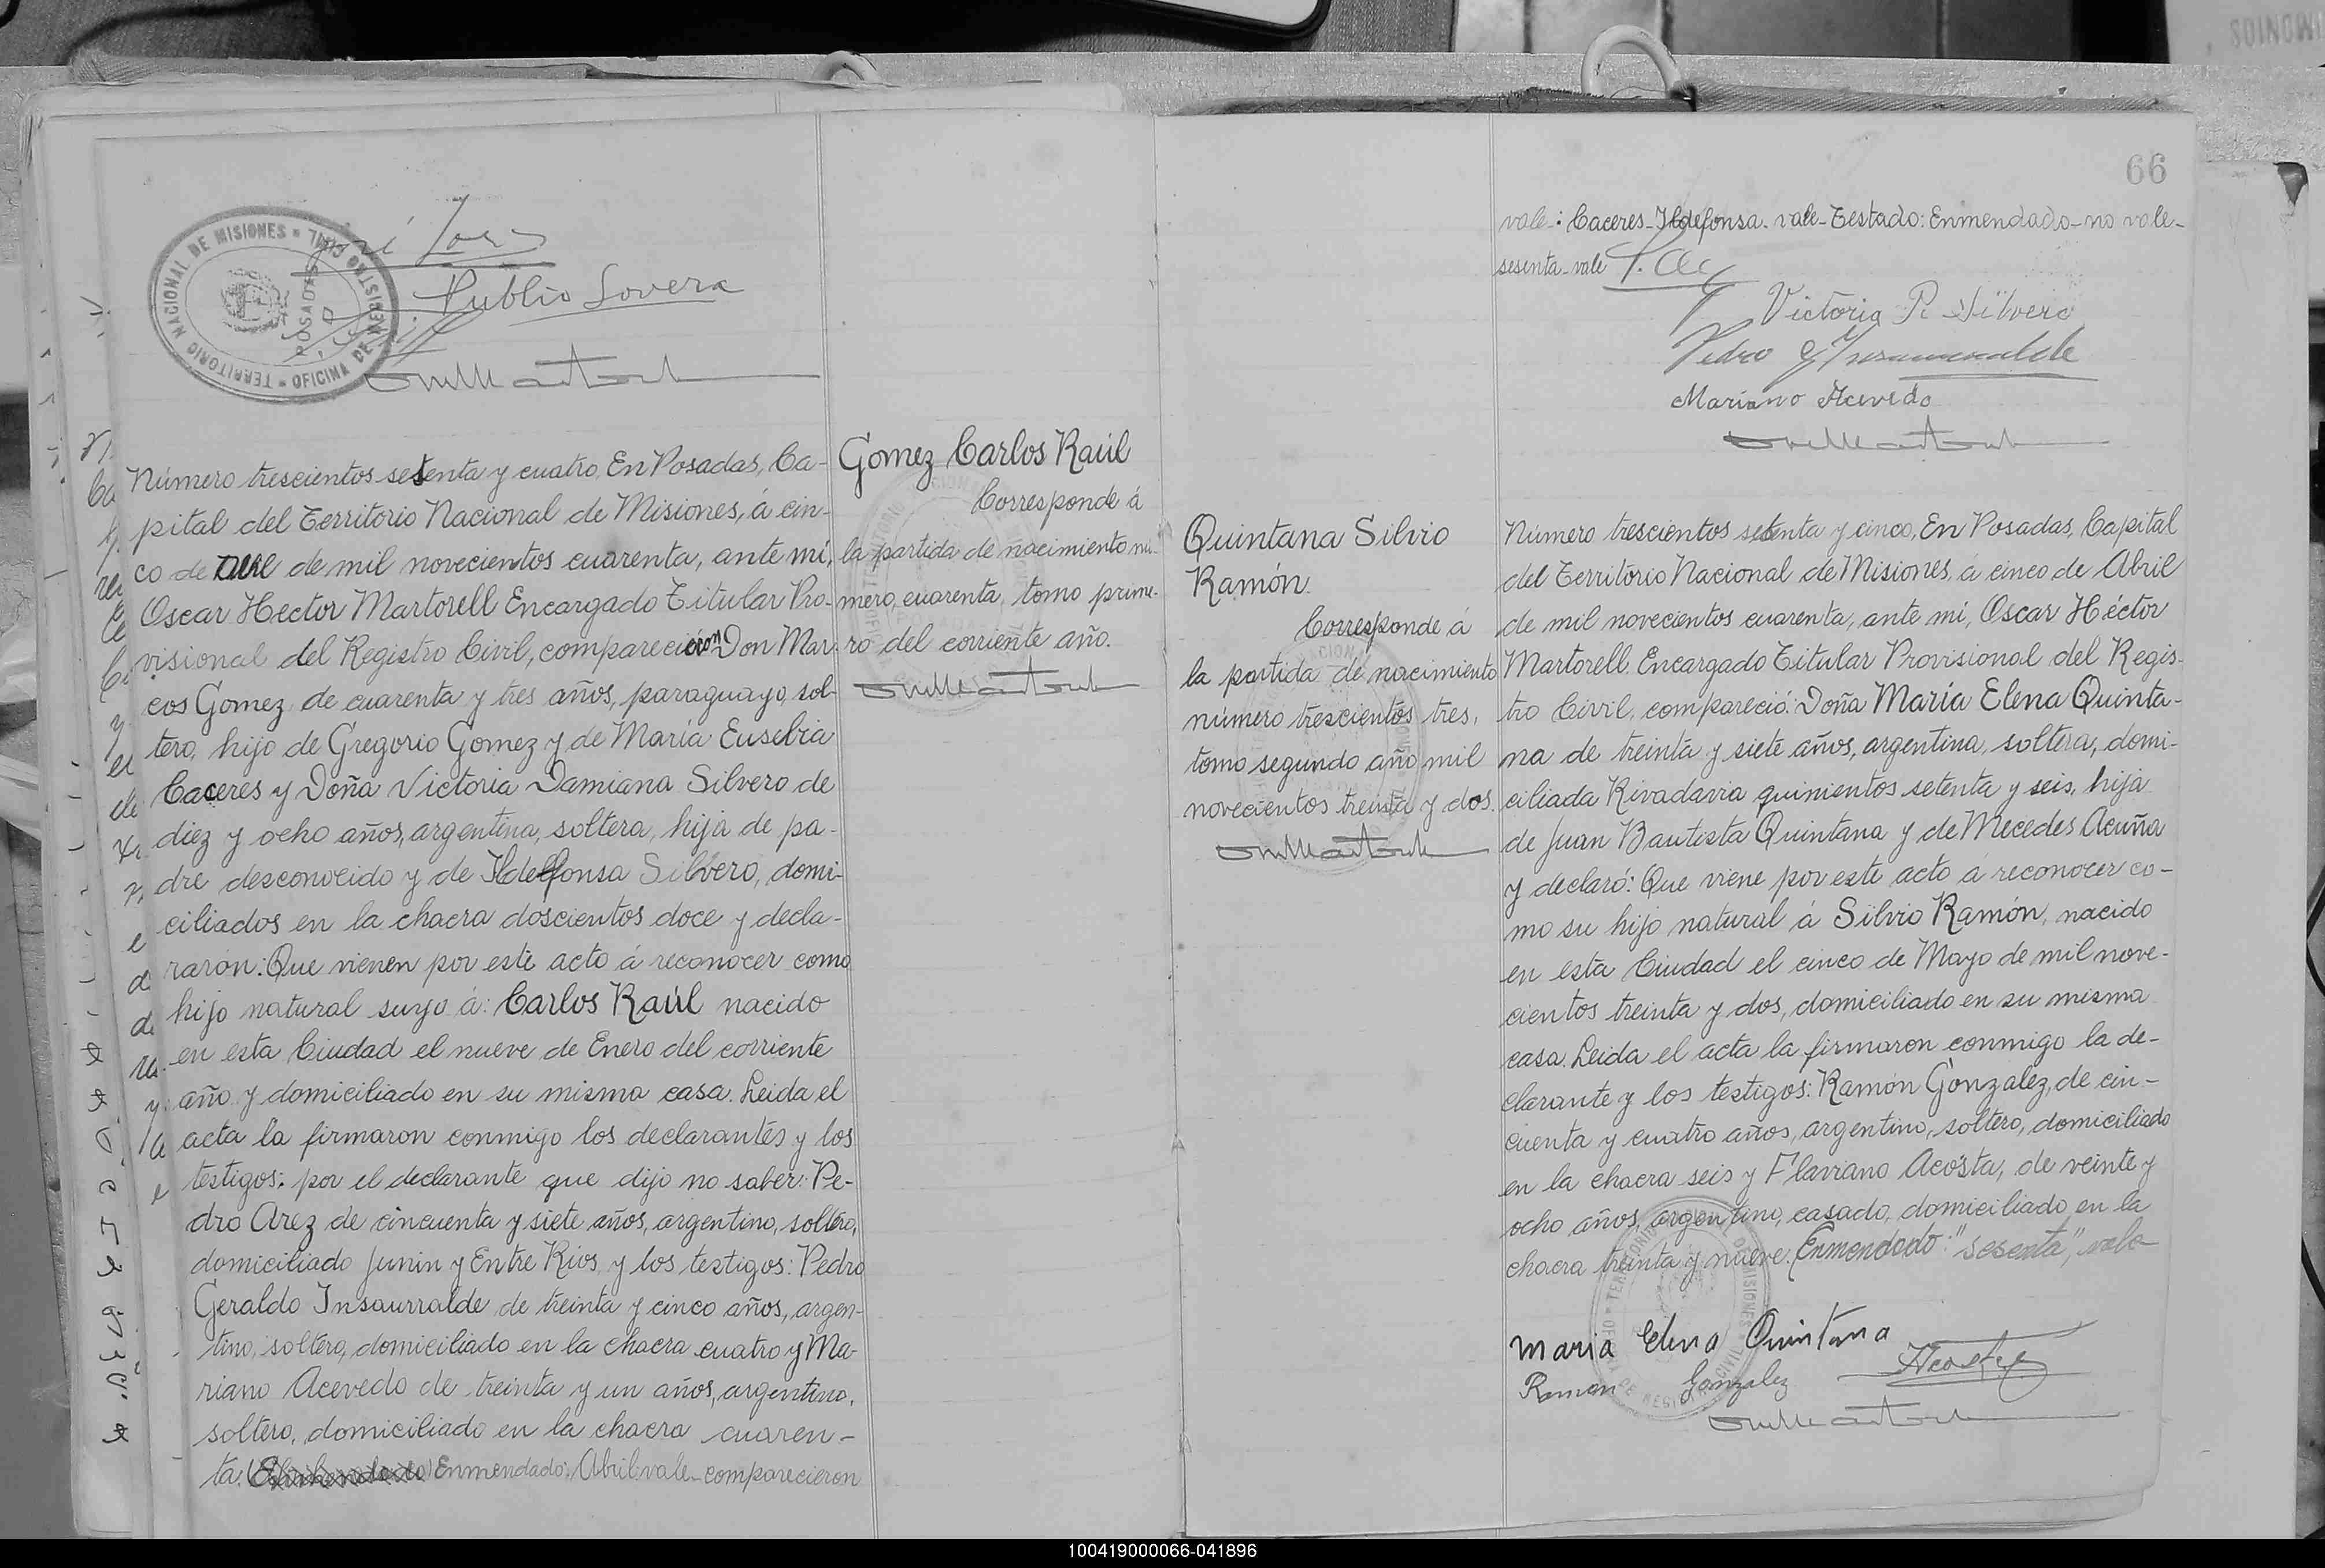 66
TERRITORIO NACIONAL DE MISIONES = OFICINA DE REGISTRO CIVIL
POSADAS
Publio Lovera
Número trescientos setenta y cuatro, En Posadas, Ca-
pital del Territorio Nacional de Misiones, á cin-
co de Abril de mil novecientos cuarenta, ante mí,
Oscar Hector Martorell Encargado Titular Pro-
visional del Registro Civil, comparecieron Don Mar-
cos Gomez de cuarenta y tres años, paraguayo, sol-
tero, hijo de Gregorio Gomez y de María Eusebia
Caceres y Doña Victoria Damiana Silvero de
diez y ocho años, argentina, soltera, hija de pa-
dre desconocido y de Ildefonsa Silvero, domi-
ciliados en la chacra doscientos doce y decla-
raron: Que vienen por este acto á reconocer como
hijo natural suyo á: Carlos Raúl nacido
en esta Ciudad el nueve de Enero del corriente
año y domiciliado en su misma casa. Leida el
acta la firmaron conmigo los declarantes y los
testigos: por el declarante que dijo no saber: Pe-
dro Arez de cincuenta y siete años, argentino, soltero,
domiciliado Junin y Entre Rios y los testigos: Pedro
Geraldo Insaurralde de treinta y cinco años, argen-
tino, soltero, domiciliado en la chacra cuatro y Ma-
riano Acevedo de treinta y un años, argentino,
soltero, domiciliado en la chacra cuaren-
ta. Enmendado: Abril-vale-comparecieron
Gomez Carlos Raúl
Corresponde á
la partida de nacimiento nú-
mero, cuarenta, tomo prime-
ro del corriente año.
vale-: Caceres-Ildefonsa-vale-Testado: Enmendado-no vale-
sesenta-vale
Victoria R Silvero
Pedro G Insaurralde
Mariano Acevedo
Quintana Silvio
Ramón.
Corresponde á
la partida de nacimiento
número trescientos tres,
tomo segundo año mil
novecientos treinta y dos.
Número trescientos setenta y cinco, En Posadas, Capital
del Territorio Nacional de Misiones, á cinco de Abril
de mil novecientos cuarenta, ante mí, Oscar Héctor
Martorell Encargado Titular Provisional del Regis-
tro Civil, compareció: Doña María Elena Quinta-
na de treinta y siete años, argentina, soltera, domi-
ciliada Rivadavia quinientos setenta y seis, hija
de Juan Bautista Quintana y de Mecedes Acuña
y declaró: Que viene por este acto á reconocer co-
mo su hijo natural á Silvio Ramón, nacido
en esta Ciudad el cinco de Mayo de mil nove-
cientos treinta y dos, domiciliado en su misma
casa. Leida el acta la firmaron conmigo la de-
clarante y los testigos: Ramón Gonzalez, de cin-
cuenta y cuatro años, argentino, soltero, domiciliado
en la chacra seis y Flaviano Acosta, de veinte y
ocho años, argentino, casado, domiciliado en la
chacra treinta y nueve. Enmendado: "sesenta", vale
Maria Elena Quintana
Ramon Gonzalez
FAcosta
100419000066-041896